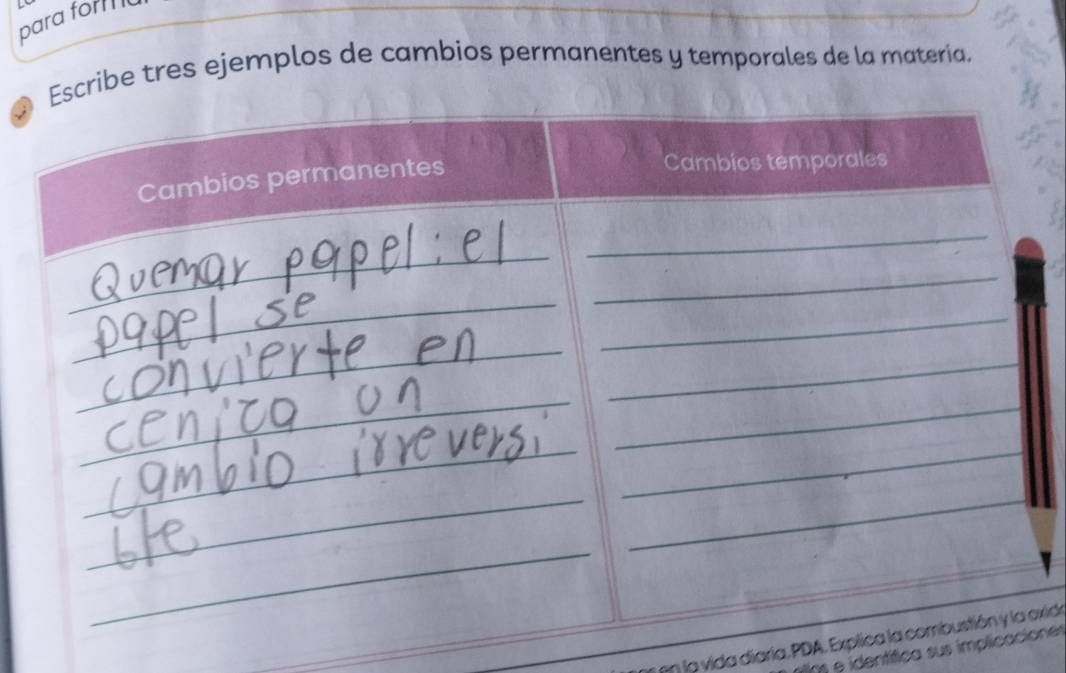 para
Escribe tres ejemplos de cambios permanentes y temporales de la materia.
Cambios permanentes
Quemar papel: el
papel se
convierte en
ceniza un
cambio irreversi
ble
Cambios temporales
en la vida diaria. PDA. Explica la combustión y la
e identifica sus implicaciones